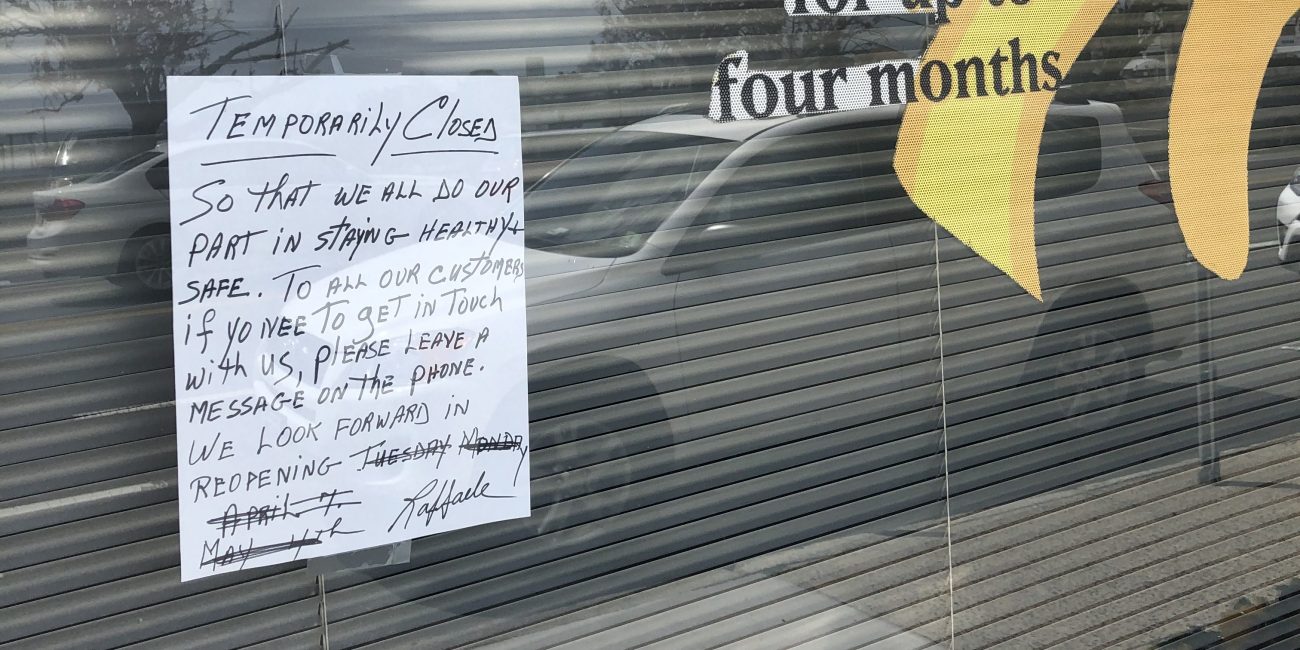 TEMPORARILY CLOSED
So that WE ALL DO OUR
PART IN STAYING HEALTHY +
SAFE. TO ALL OUR CUSTOMERS
if yo NEE To gET iN ToucH
with US, PLEASE LEAVE A
MESSAGE ON the PHONE.
WE LOOK FORWARD IN
REOPENING TUESDAY MONDAY
APRIL 7.
MAY 4th
Raffaele
for up to
four months